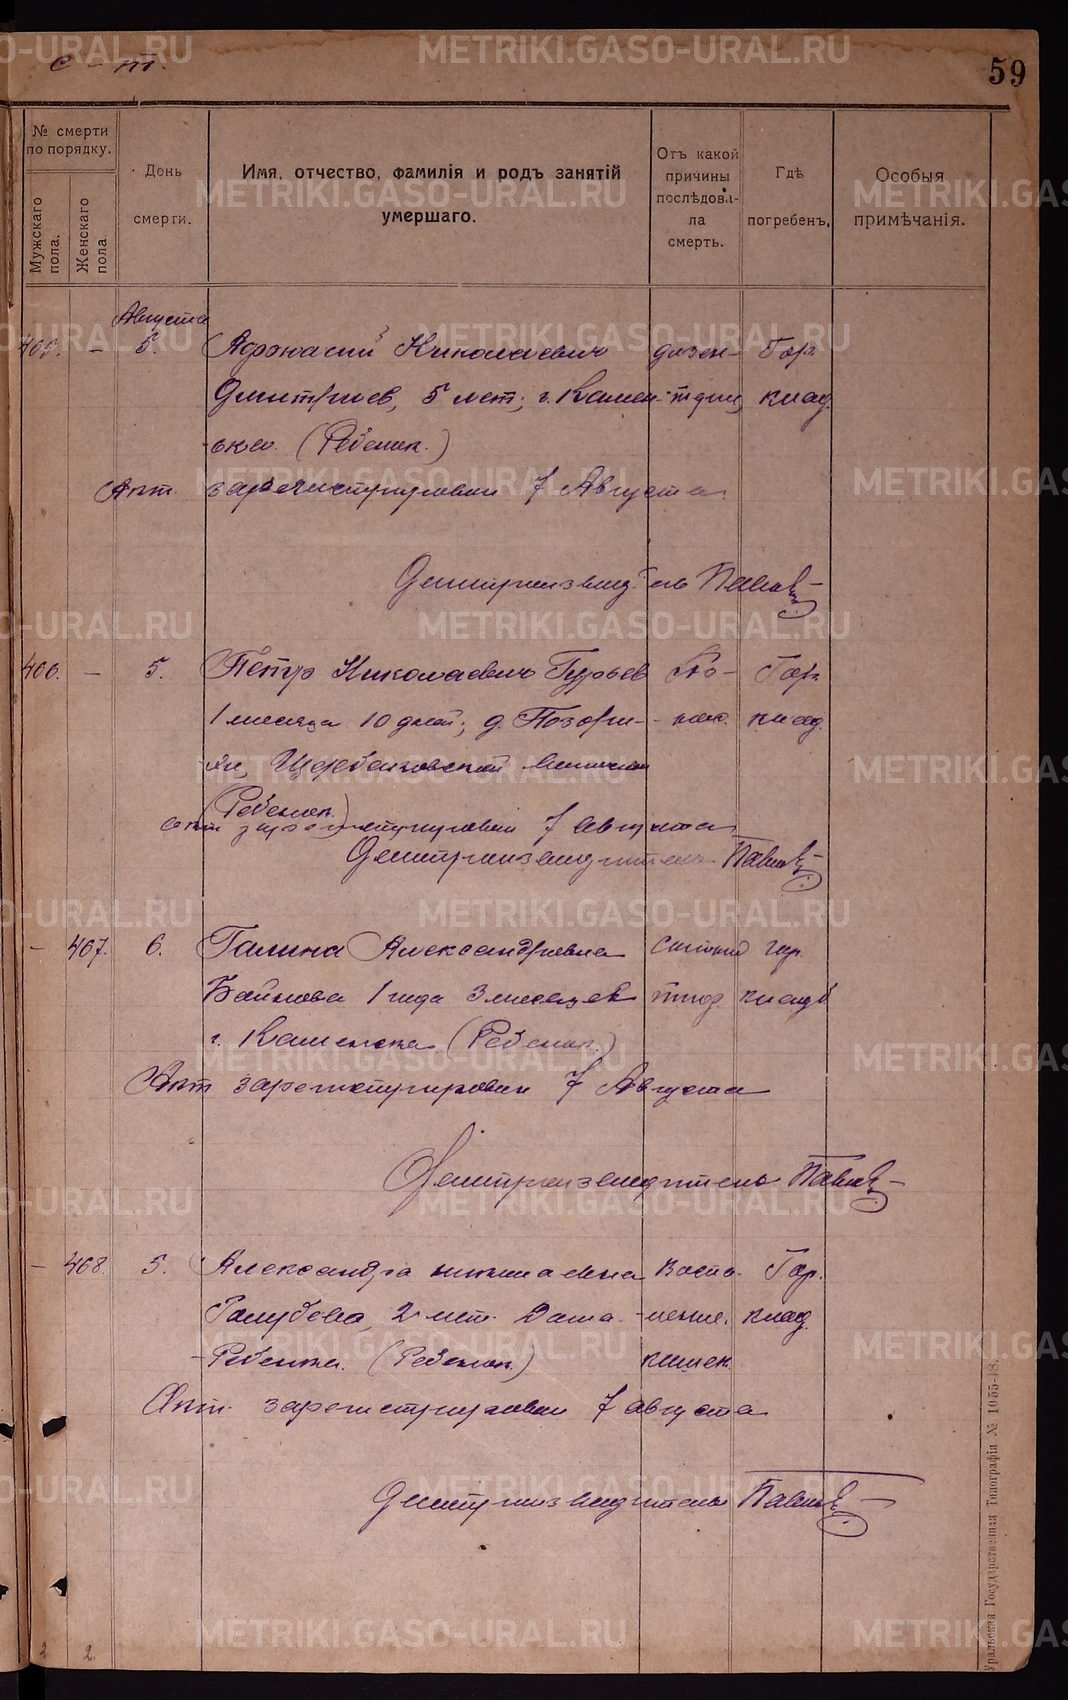 с - т.
59
№ смерти по порядку.
Мужскаго пола.
Женскаго пола
День смерти.
Имя, отчество, фамилія и родъ занятій умершаго.
Отъ какой причины послѣдова-ла смерть.
Гдѣ погребенъ.
Особыя примѣчанія.
Августа
465. - 5. Афонасий Николаевич дизен- Гор.
Дмитриев, 5 лет; г. Камен- -терия, клад.
-ска. (Ребенок.)
Акт зарегистрирован 7 Августа
Делопроизвод-ль Павлов
466. - 5. Петр Николаевич Гурьев Гор.
1 месяца 10 дней; д. клад.
Щербаковской волости
(Ребенок.)
акт зарегистрирован 7 августа
Делопроизводитель Павлов
- 467. 6. Галина Александровна гор.
Баинова 1 года 3 месяцев кладб
г. Каменска (Ребенок.)
Акт зарегистрирован 7 Августа
Делопроизводитель Павлов
- 468. 5. Александра Воспа- Гор.
Голубева, 2 лет. -ление. клад.
(Ребенок) кишек
Акт. зарегистрирован 7 августа
Делопроизводитель Павлов
2 2.
Уральская Государственная Типографія № 1055-18.
METRIKI.GASO-URAL.RU